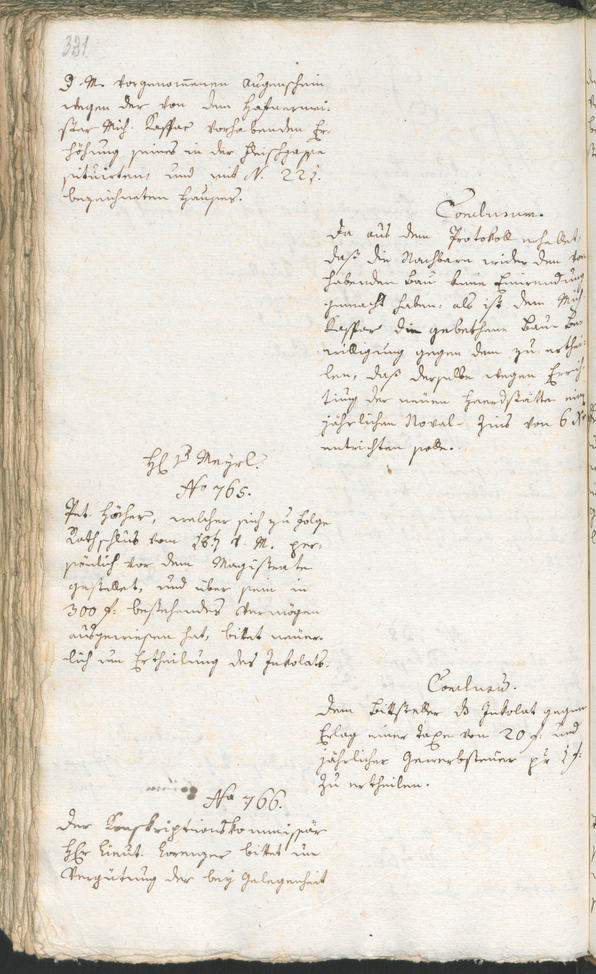 331
d. M. vorgenommenen Augenschein
wegen der von dem Hafnermei-
ster Mich. Kaspar vorhabenden Er-
höhung seines in der Fleischgasse
situirten, und mit N. 221.
bezeichneten Hauses.
Conclusum.
Da aus dem Protokoll erhellet,
daß die Nachbarn wider den vor-
habenden Bau keine Einwendung
gemacht haben, als ist dem Mich.
Kaspar die gebethene Bau Be-
willigung gegen dem zu erthei-
len, daß derselbe wegen Errich-
tung der neuen Heerdstätte einen
jährlichen Noval-Zins von 6 Xr
entrichten solle.
H: B: Meyrl.
No 765.
Pet. Höcher, welcher sich zu Folge
Rathschluß vom 18t d. M. per-
sönlich vor dem Magistrate
gestellet, und über sein in
300 f: bestehendes Vermögen
ausgewiesen hat, bittet neuer-
lich um Ertheilung des Inkolats.
Conclusum.
Dem Bittsteller ds Inkolat gegen
Erlag einer Taxe von 20 f: und
jährlicher Gewerbsteuer pr 1 f:
zu ertheilen.
No 766.
Der Konskriptionskommissär
HEr Lieut. Lorenzer bittet um
Vergütung der bey Gelegenheit